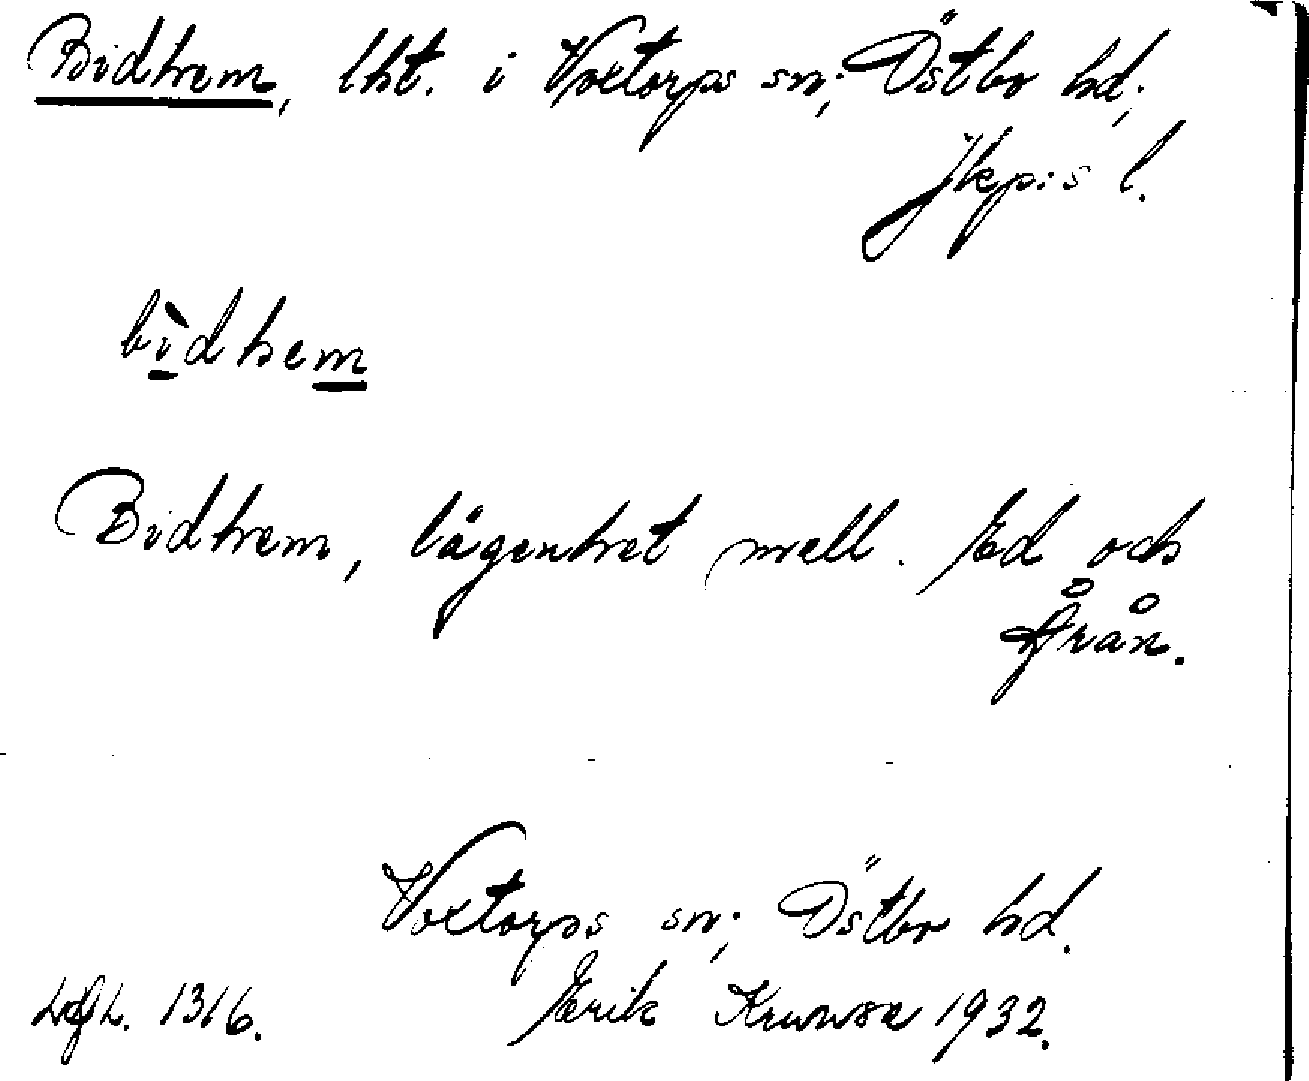 Bidhem, lht. i Voxtorps sn; Östbo hd;
Jkp:s l.
bìdhem
Bidhem, lägenhet mell. Ed och
från.
Voxtorps sn; Östbo hd.
Erik 1932.
1316.